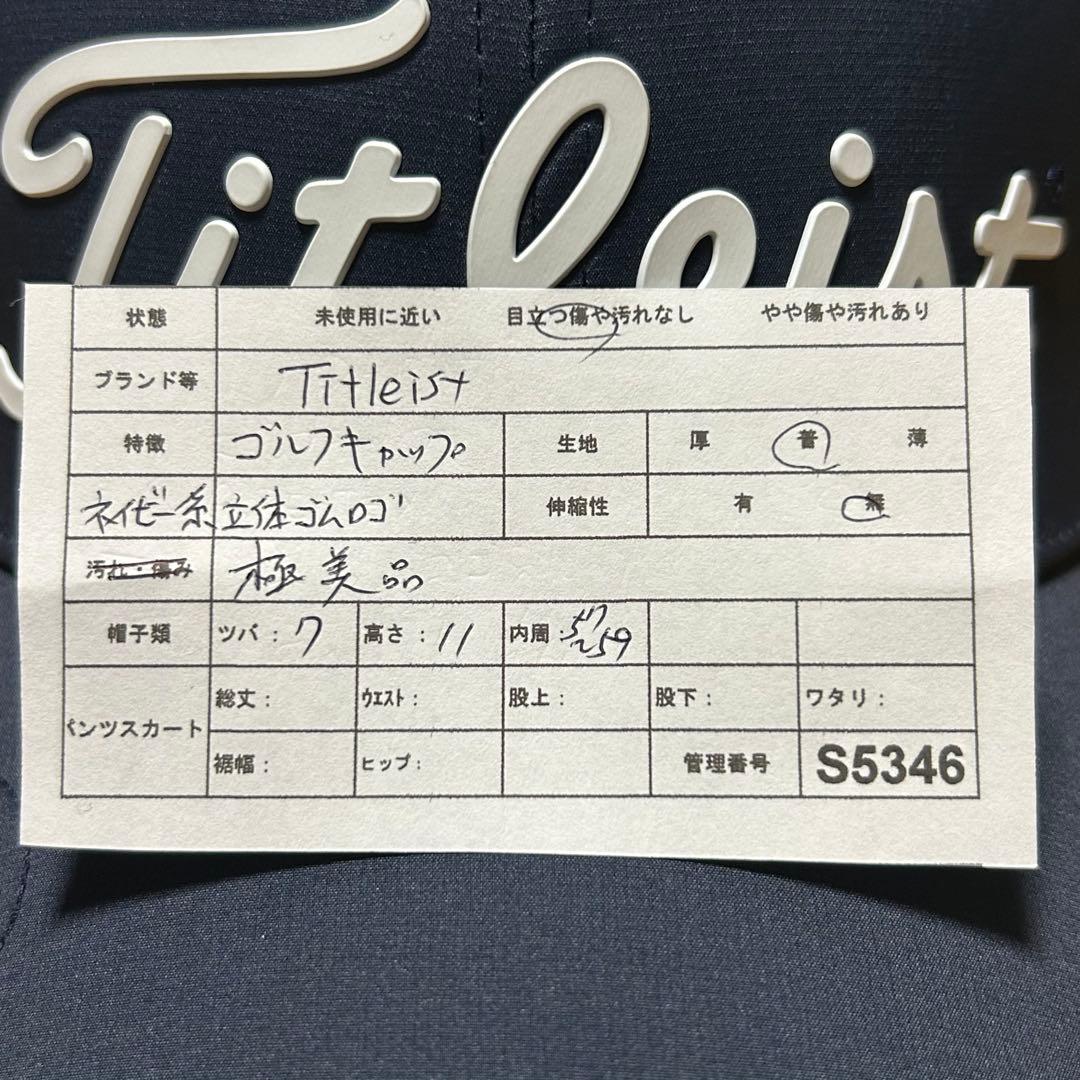 Titleist
状態 未使用に近い 目立つ傷や汚れなし やや傷や汚れあり
ブランド等 Titleist
特徴 ゴルフキャップ 生地 厚 普 薄
ネイビー系 立体ゴムロゴ 伸縮性 有 無
汚れ・傷み 極美品
帽子類 ツバ：7 高さ：11 内周：57〜59
パンツスカート 総丈： ウエスト： 股上： 股下： ワタリ：
裾幅： ヒップ： 管理番号 S5346